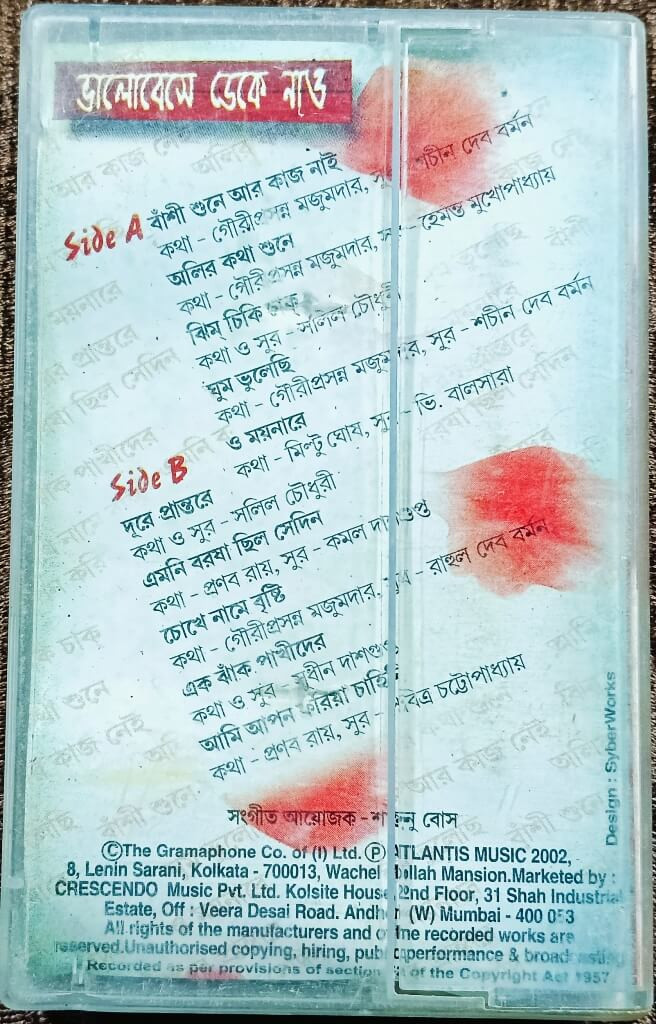 ভালোবেসে ডেকে নাও
Side A বাঁশী শুনে আর কাজ নাই
কথা - গৌরীপ্রসন্ন মজুমদার, সুর - শচীন দেব বর্মন
অলির কথা শুনে
কথা - গৌরীপ্রসন্ন মজুমদার, সুর - হেমন্ত মুখোপাধ্যায়
ঝিম্ চিকি
কথা ও সুর - সলিল চৌধুরী
ঘুম ভুলেছি
কথা - গৌরীপ্রসন্ন মজুমদার, সুর - শচীন দেব বর্মন
ও ময়নারে
কথা - মিল্টু ঘোষ, সুর - ভি. বালসারা
Side B
দূরে প্রান্তরে
কথা ও সুর - সলিল চৌধুরী
এমনি বরষা ছিল সেদিন
কথা - প্রণব রায়, সুর - কমল দাশগুপ্ত
চোখে নামে বৃষ্টি
কথা - গৌরীপ্রসন্ন মজুমদার, সুর - রাহুল দেব বর্মন
এক ঝাঁক পাখীদের
কথা ও সুর - সুধীন দাশগুপ্ত
আমি আপন করিয়া চাহি
কথা - প্রণব রায়, সুর - চট্টোপাধ্যায়
সংগীত আয়োজক - বোস
Design : SyberWorks
©The Gramaphone Co. of (I) Ltd. Ⓟ ATLANTIS MUSIC 2002,
8, Lenin Sarani, Kolkata - 700013, Wachel Mollah Mansion.Marketed by :
CRESCENDO Music Pvt. Ltd. Kolsite House, 22nd Floor, 31 Shah Industrial
Estate, Off : Veera Desai Road. Andheri (W) Mumbai - 400 053
All rights of the manufacturers and of the recorded works are
reserved.Unauthorised copying, hiring, public performance & broadcasting
Recorded as per provisions of section of the Copyright Act 1957